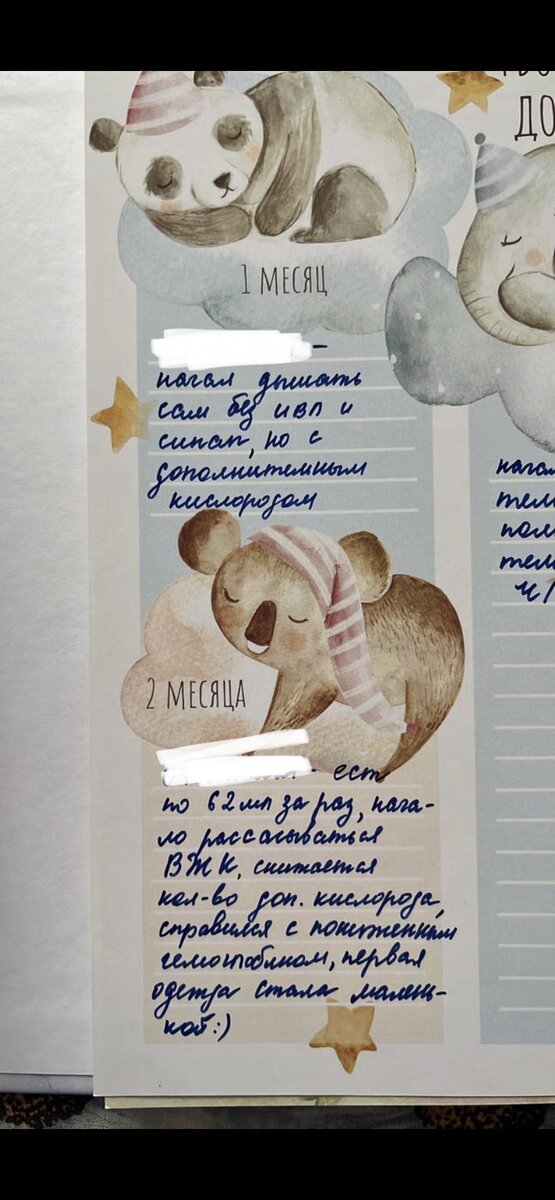 ДО
1 МЕСЯЦ
–
начал дышать
сам без ивл и
сипап, но с
дополнительным
кислородом
2 МЕСЯЦА
- ест
по 62 мл за раз, нача-
ло рассасываться
ВЖК, снижается
кол-во доп. кислорода,
справился с пониженным
гемоглобином, первая
одежда стала малень-
кой:)
начал
тел
пол
тел